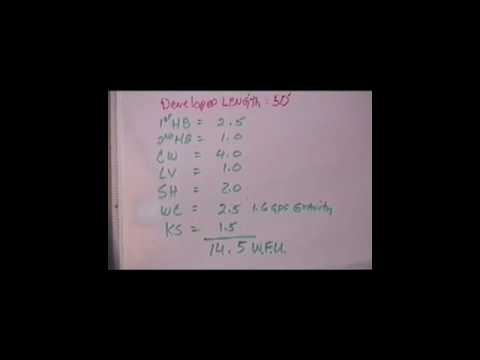 Developed Length: 50'
1st HB = 2.5
2nd HB = 1.0
CW = 4.0
LV = 1.0
SH = 2.0
WC = 2.5 1.6 GPF Gravity
KS = 1.5
14.5 W.F.U.